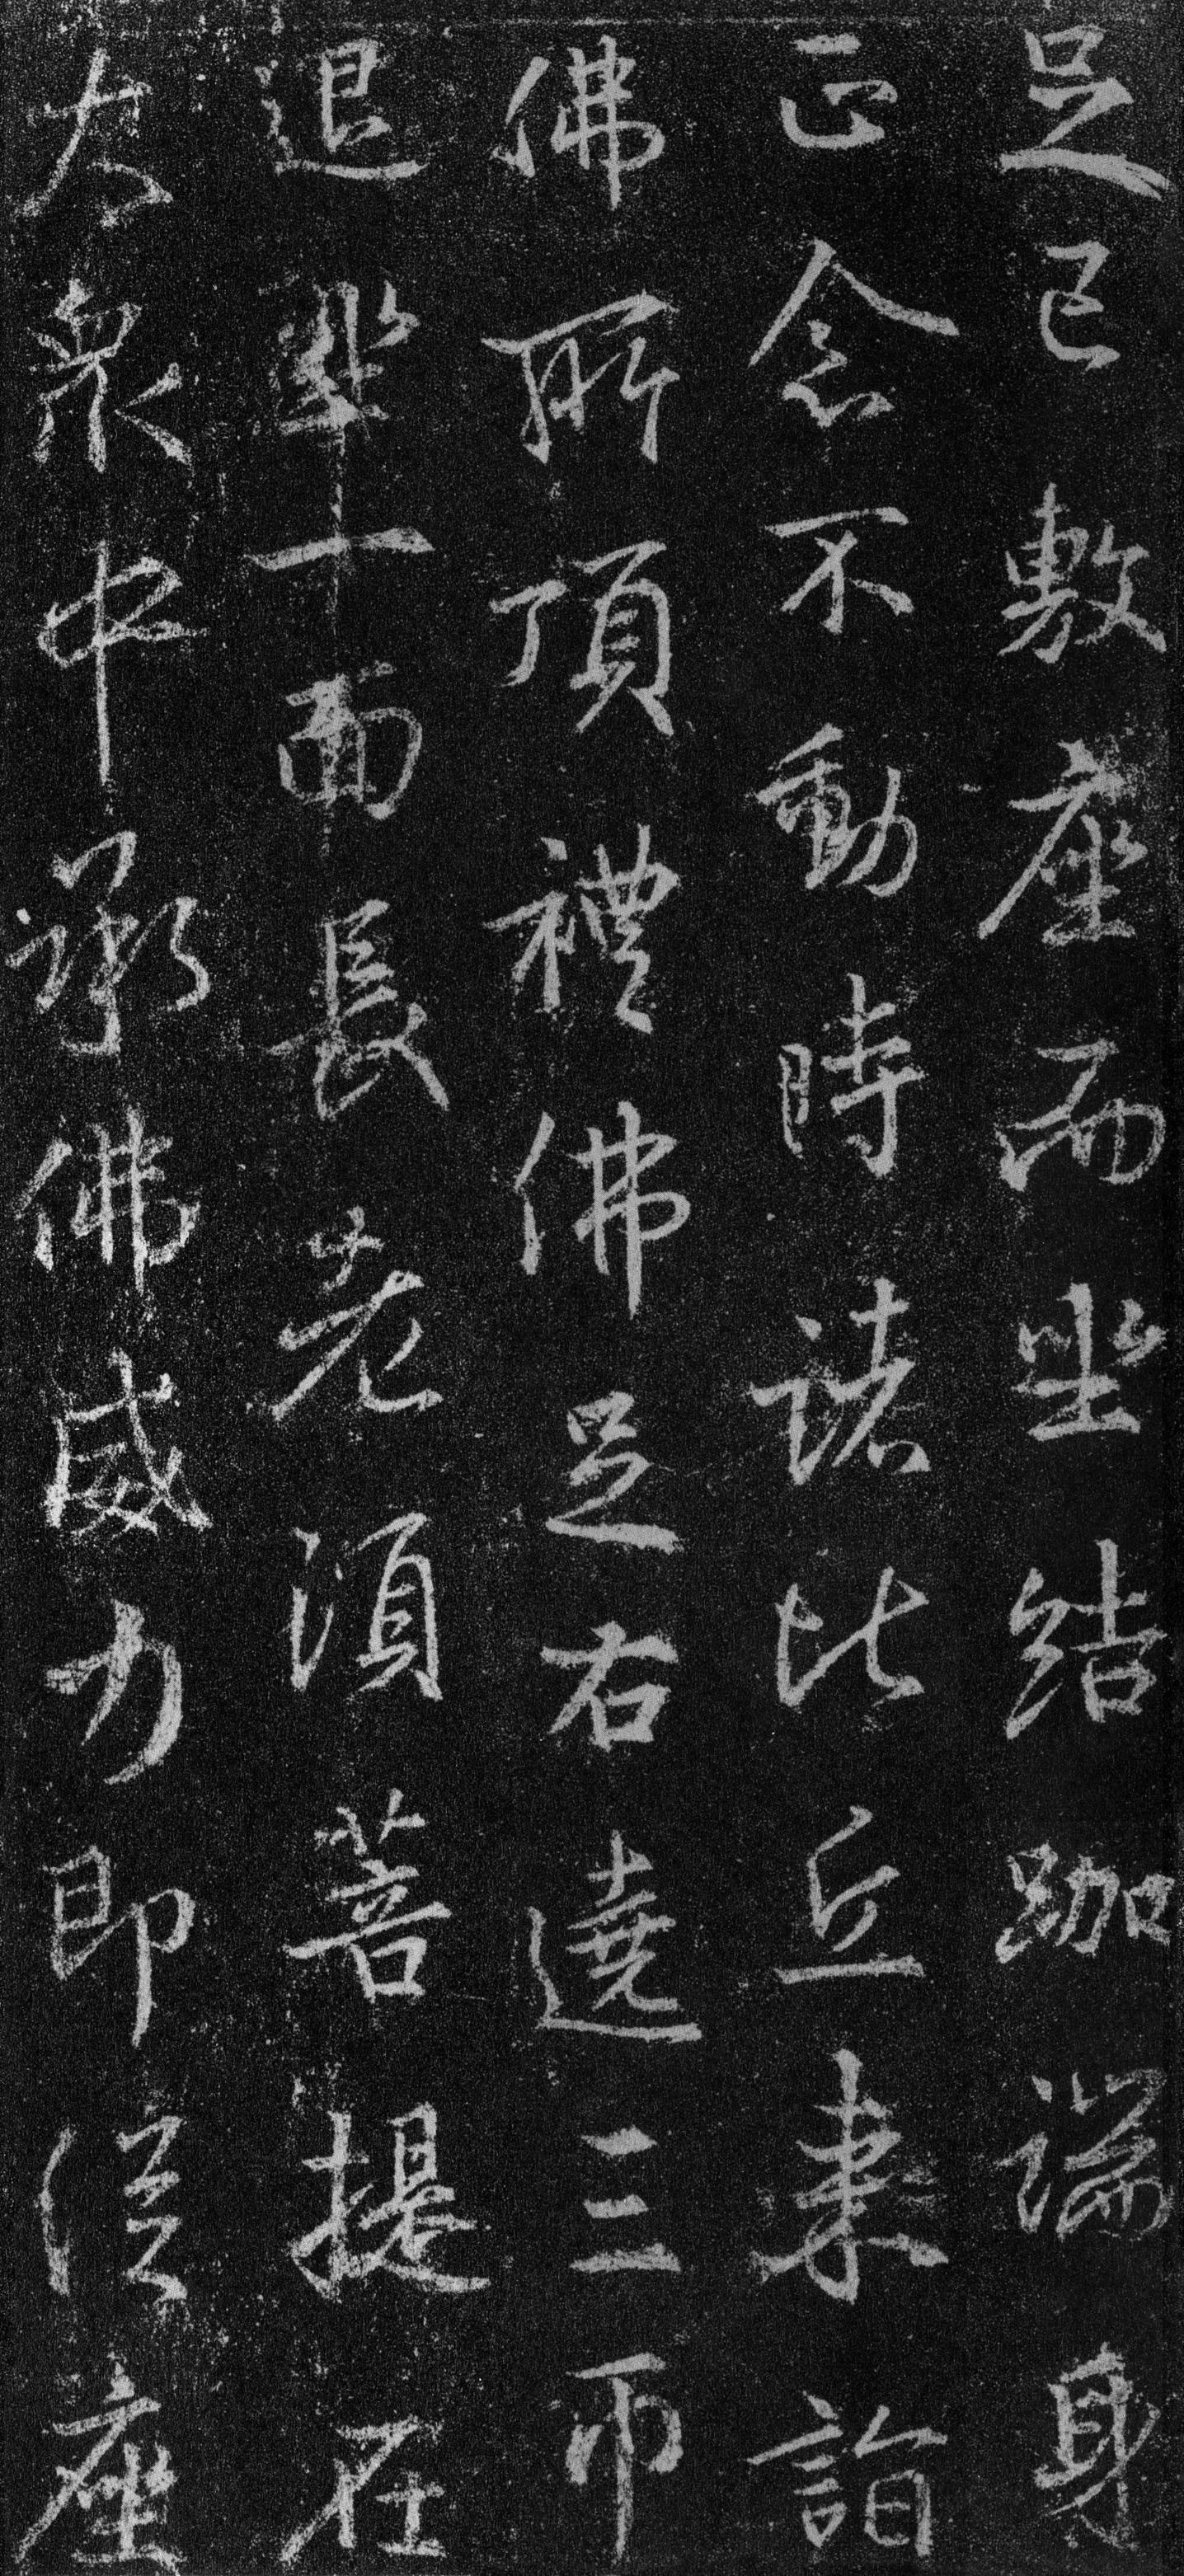 足已敷座而坐結跏端身
正念不動時諸比丘来詣
佛所頂禮佛足右遶三帀
退坐一面長老湏菩提在
大衆中承佛威力即從座